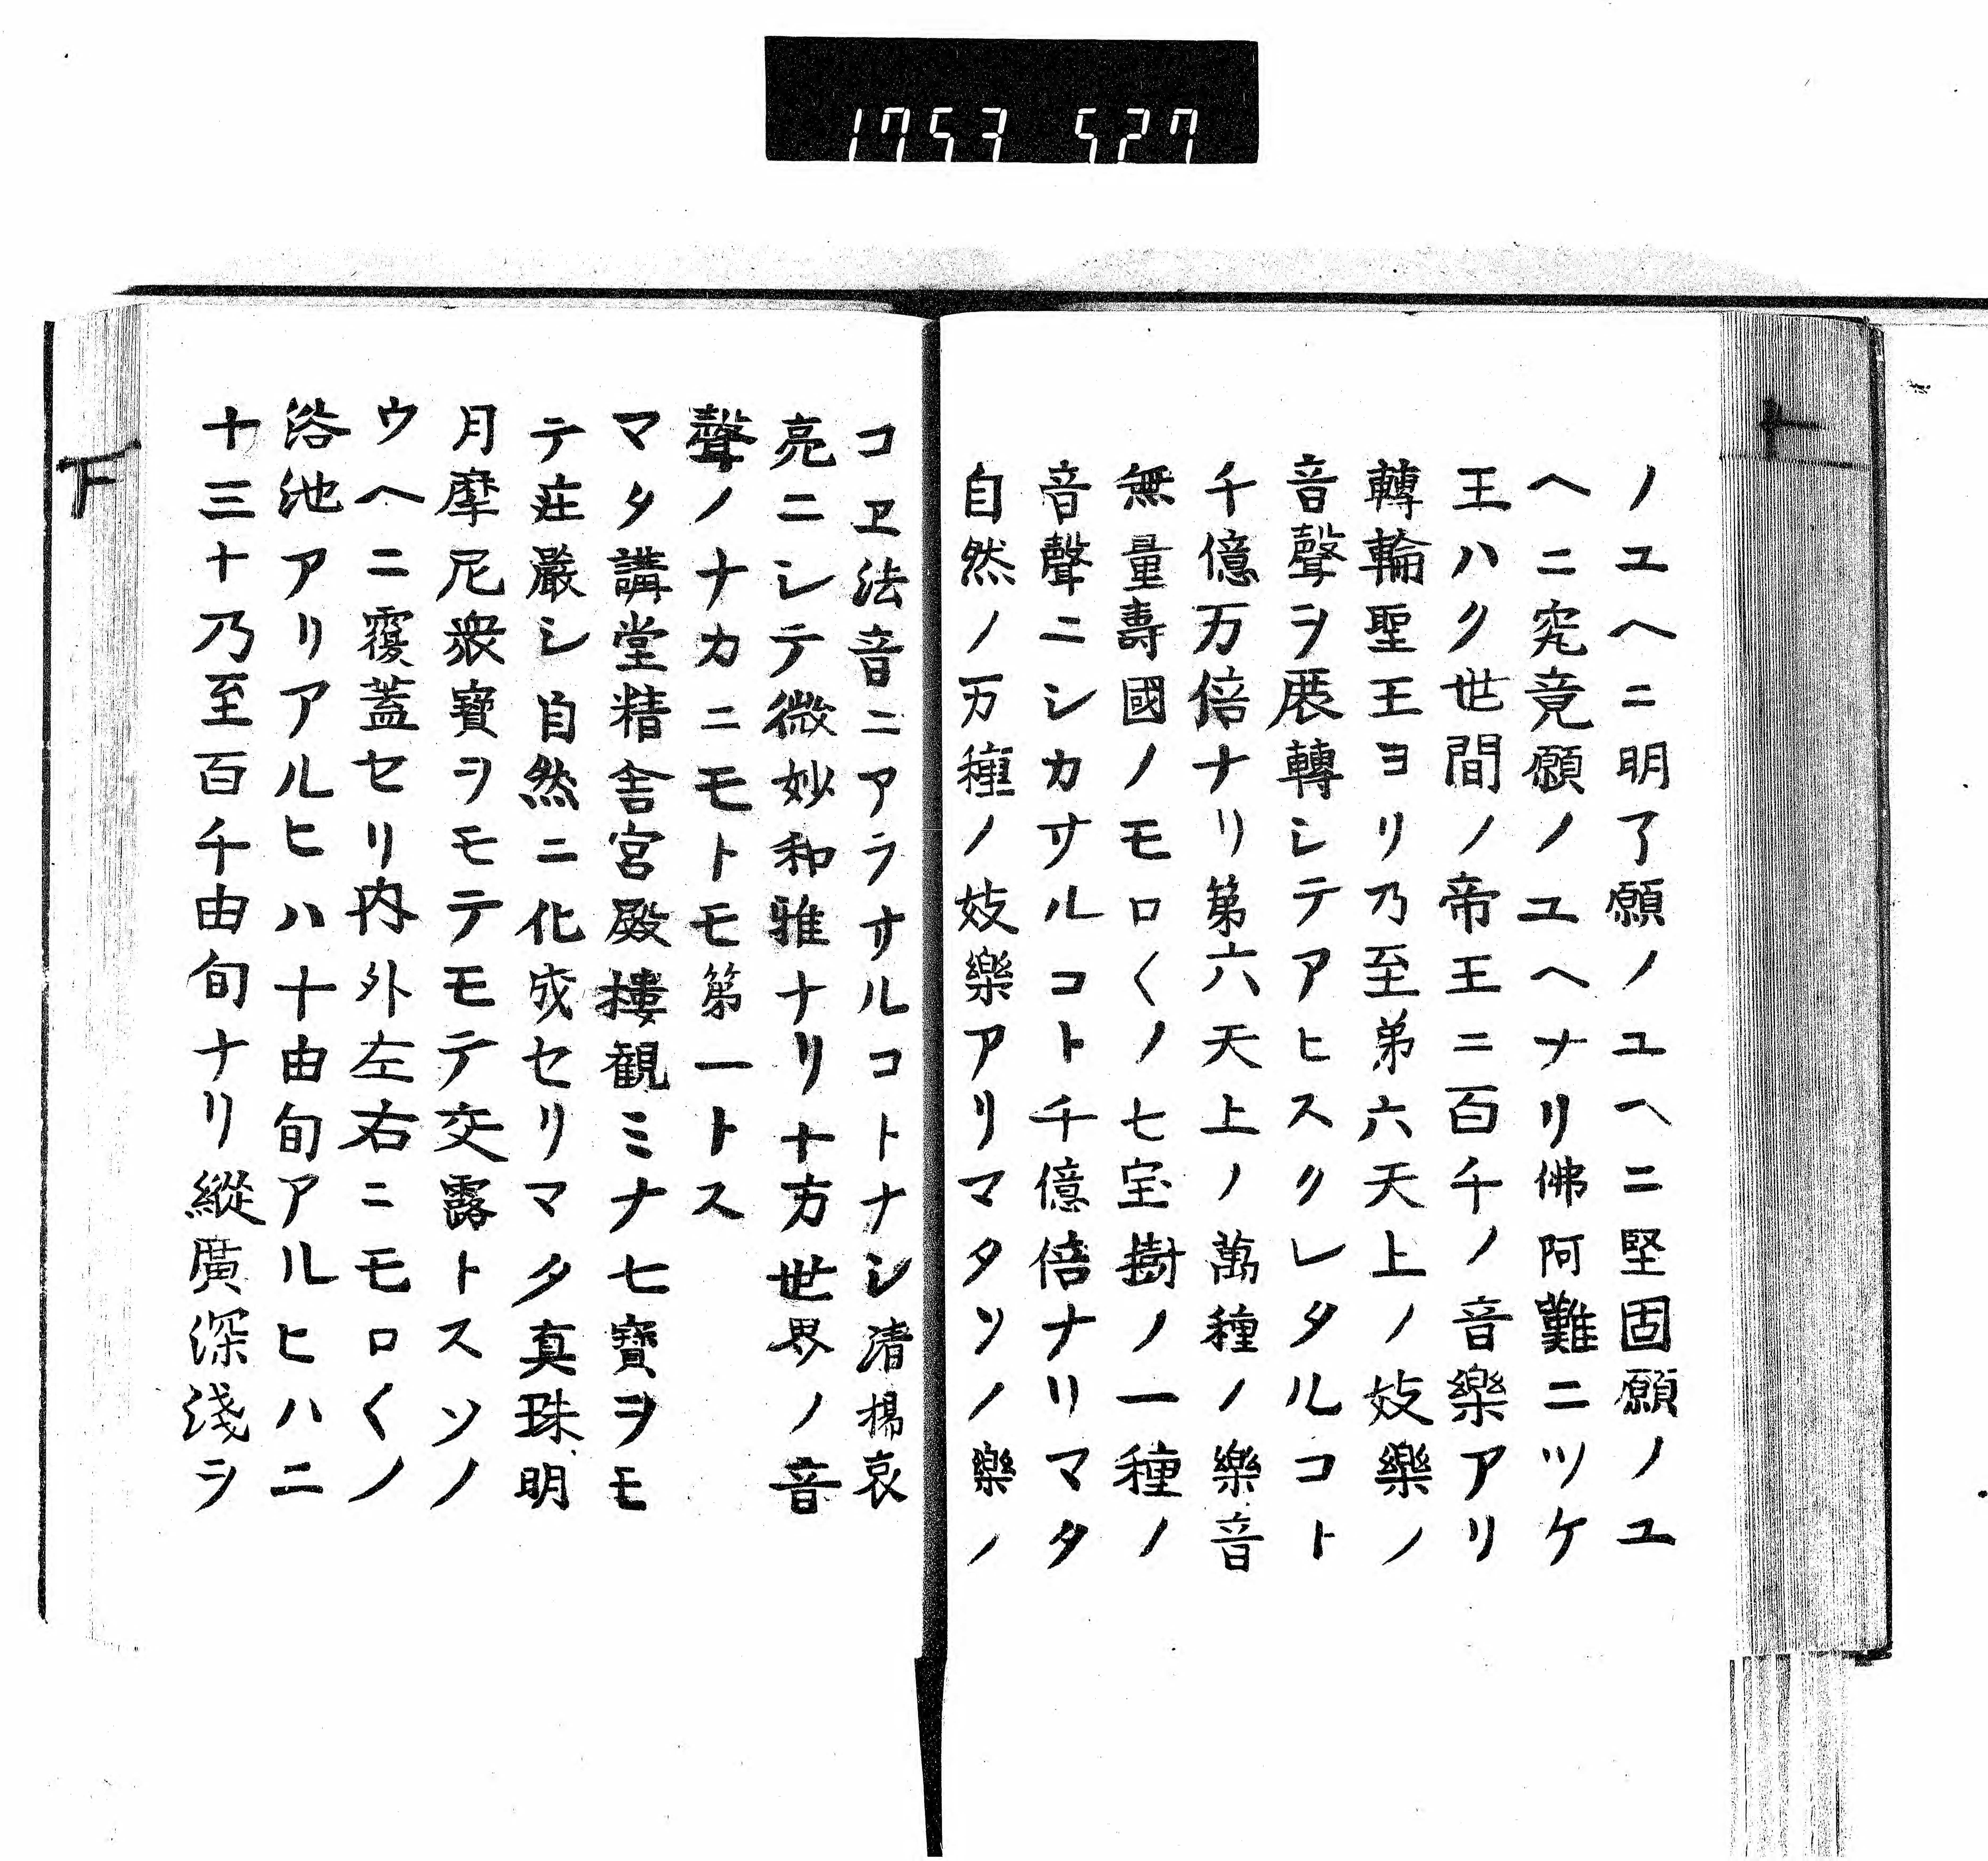 1753 527
ノユヘニ明了願ノユヘニ堅固願ノユ
ヘニ究竟願ノユヘナリ佛阿難ニツケ
王ハク世間ノ帝王ニ百千ノ音樂アリ
轉輪聖王ヨリ乃至弟六天上ノ妓樂ノ
音聲ヲ展轉シテアヒスクレタルコト
千億万倍ナリ第六天上ノ萬種ノ樂音
無量壽國ノモロ〱ノ七宝樹ノ一種ノ
音聲ニシカサルコト千億倍ナリマタ
自然ノ万種ノ妓樂アリマタソノ樂ノ
コヱ法音ニアラサルコトナシ清揚哀
亮ニシテ微妙和雅ナリ十方世界ノ音
聲ノナカニモトモ第一トス
マタ講堂精舎宮殿摟観ミナ七寶ヲモ
テ荘嚴シ自然ニ化成セリマタ真珠明
月摩尼衆寶ヲモテモテ交露トスソノ
ウヘニ覆蓋セリ内外左右ニモロ〱ノ
浴池アリアルヒハ十由旬アルヒハ二
十三十乃至百千由旬ナリ縱廣深淺ヲ
上
下